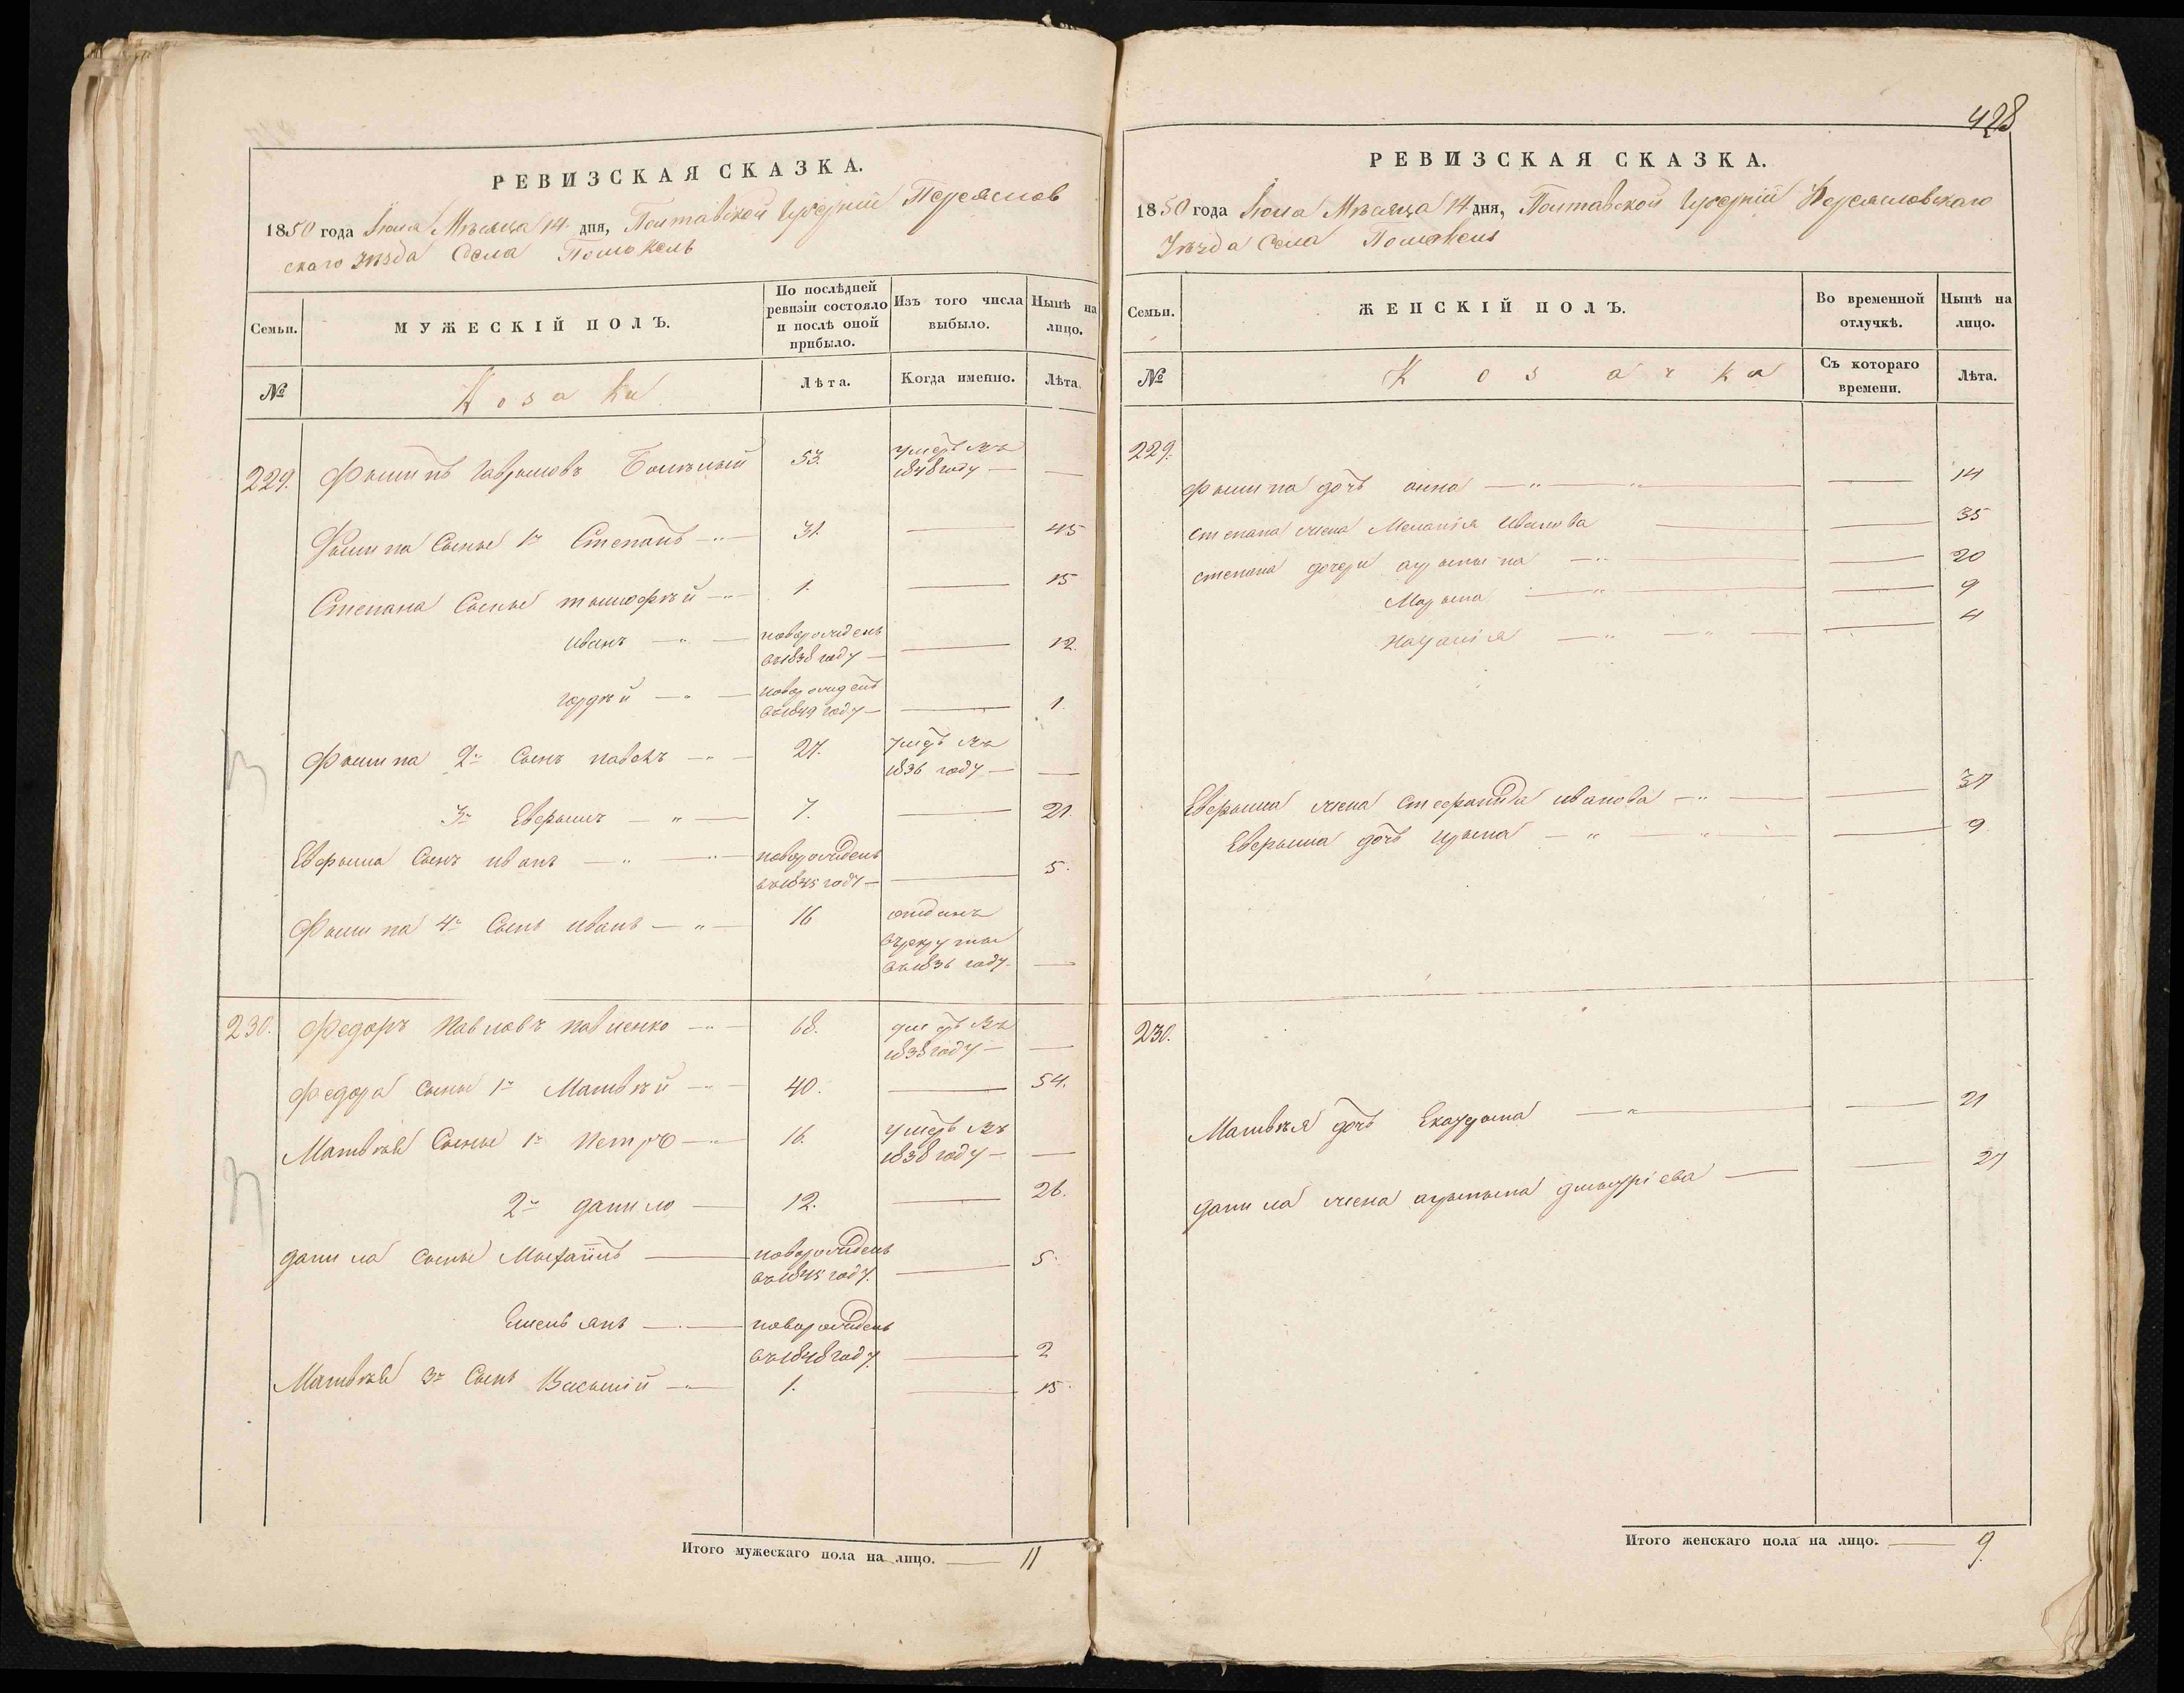 428
РЕВИЗСКАЯ СКАЗКА.
1850 года Июля Мѣсяца 14 дня, Полтавской Губерніи Переяслов
скаго уѣзда Села Помокель
Семьи.
МУЖЕСКІЙ ПОЛЪ.
По послѣдней ревизіи состояло и послѣ оной прибыло.
Изъ того числа выбыло.
Нынѣ на лицо.
№
Козаки
Лѣта.
Когда именно.
Лѣта.
229. Филипъ Гавриловъ 53. умеръ въ 1848 году —
Филипа Сыны 1й Степанъ — 31. — 45
Степана Сыны тимофѣй — 1. — 15
иванъ — новорожденъ въ 1838 году — 12.
гордѣй — новорожденъ въ 1849 году — 1.
Филипа 2й Сынъ павелъ — 27. умеръ въ 1836 году —
3й Евфимъ — 7. — 21.
Евфима Сынъ иванъ — новорожденъ въ 1845 году — 5.
Филипа 4й Сынъ иванъ — 16 отданъ въ рекруты въ 1836 году —
230. Федоръ Павловъ Павленко — 68. умеръ въ 1838 году —
Федора Сыны 1й Матвѣй — 40. — 54.
Матвѣя Сыны 1й Петро — 16. умеръ въ 1838 году —
2й данило — 12. — 26.
данила Сыны — новорожденъ въ 1845 году. — 5.
Емельянъ — новорожденъ въ 1848 году. — 2
Матвѣя 3й Сынъ Василій — 1. — 15.
Итого мужескаго пола на лицо. — 11
РЕВИЗСКАЯ СКАЗКА.
1850 года Июля Мѣсяца 14 дня, Полтавской Губерніи Переясловскаго
Уѣзда Села Помокель
Семьи.
ЖЕНСКІЙ ПОЛЪ.
Во временной отлучкѣ.
Нынѣ на лицо.
№
Козачки
Съ котораго времени.
Лѣта.
229.
Филипа дочь анна — — 14
Степана жена Меланія Иванова — 35
степана дочери — 20
Марина — — 9
— — 4
Евфима жена Стефанида иванова — — 31
Евфима дочь ирина — — 9
230.
Матвѣя дочь Екатерина — — 21
данила жена дмитріева — — 27
Итого женскаго пола на лицо. — 9.